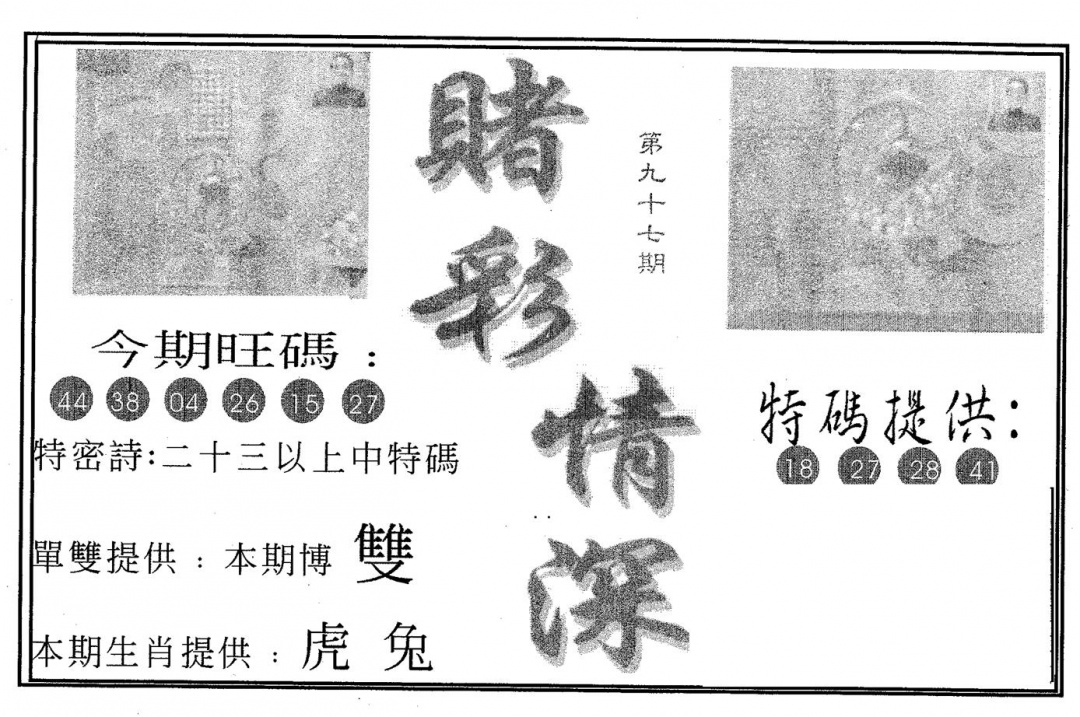 賭彩情深
第九十七期
今期旺碼：
44 38 04 26 15 27
特密詩:二十三以上中特碼
單雙提供：本期博 雙
本期生肖提供：虎 兔
特碼提供：
18 27 28 41